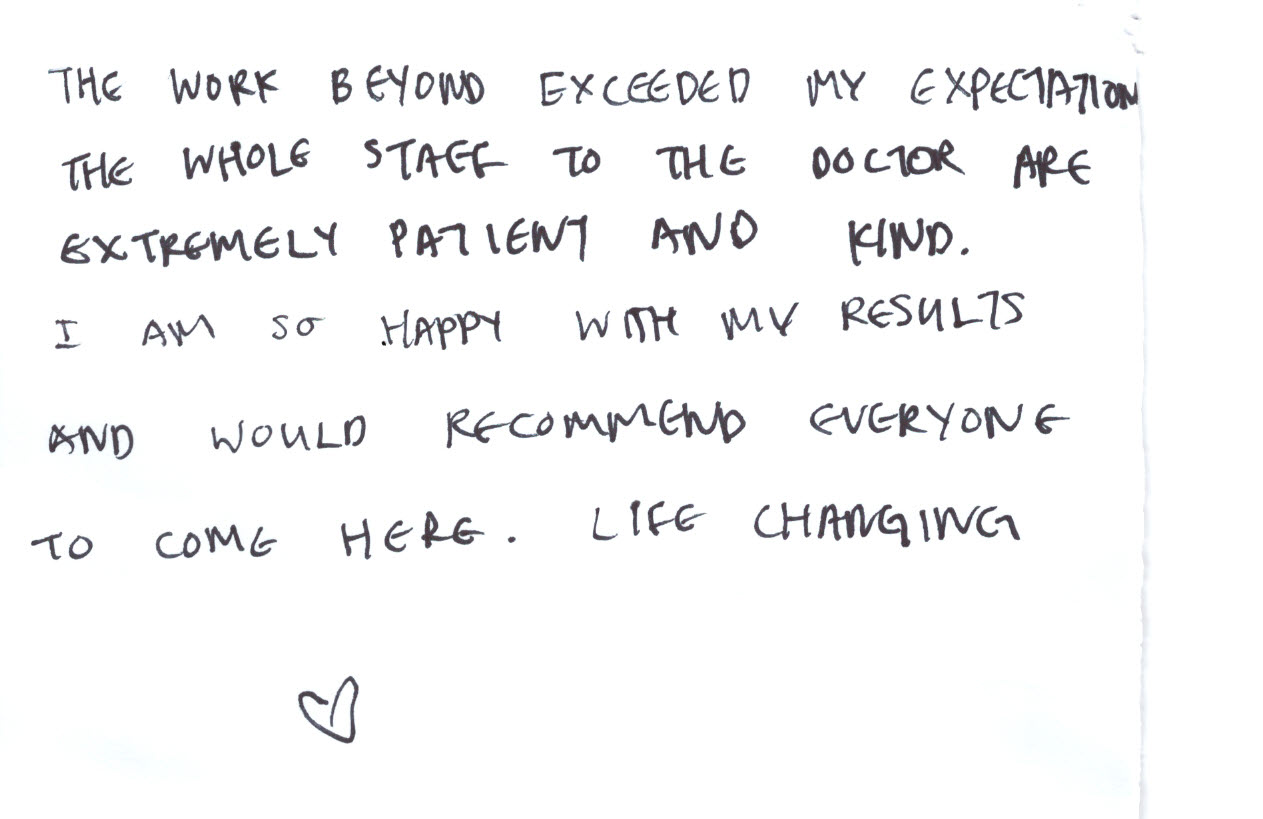 THE WORK BEYOND EXCEEDED MY EXPECTATION
THE WHOLE STAFF TO THE DOCTOR ARE
EXTREMELY PATIENT AND KIND.
I AM SO HAPPY WITH MY RESULTS
AND WOULD RECOMMEND EVERYONE
TO COME HERE. LIFE CHANGING